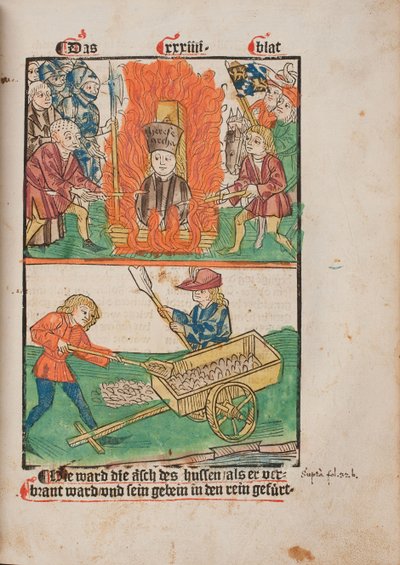 Das xxxiiii· blat
heresi
archa
Hie ward die äsch des hussen/als er ver-
brant ward/vnd sein gebein in den rein gefürt·
Supra fol. 32. b.